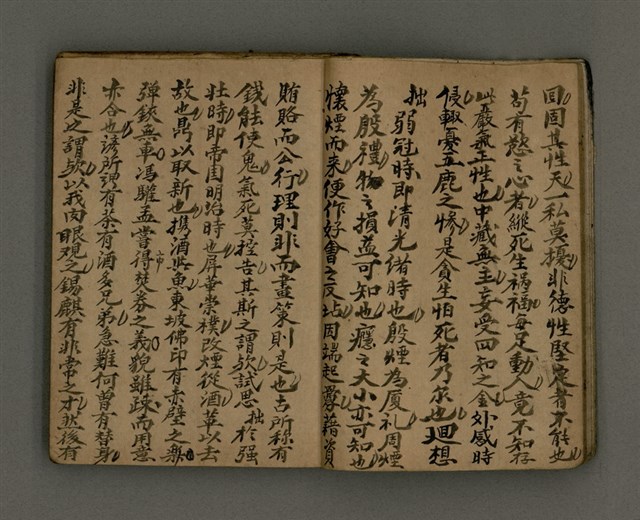 回固其性天一私莫擾非德性堅定者不能也
苟有慾之心者縱死生禍福每足動人竟不知存
此嚴氣正性也中藏無主妄受四知之金外感時
侵輒憂五鹿之慘是貪生怕死者乃尔也迴想
拙弱冠時即清光緒時也殷煙為厦礼周煙
為殷禮物之損益可知也癮之大小亦可知也
懷煙而來便作好會之反坫因端起釁藉資
賄賂而公行理則非而畫策則是也古所称有
錢能使鬼氣死莫控告其斯之謂歟試思拙於强
壮時即帝国明治時也屏華崇樸改煙從酒華以去
故也鼎以取新也携酒與魚東坡佛印有赤壁之樂
彈鋏無車馮驩孟嘗得焚券之義貌雖疎而用意
亦合也諺所謂有茶有酒多兄弟急難何曾有替身
非是之謂歟以我肉眼观之錫麒有非常之才然後有